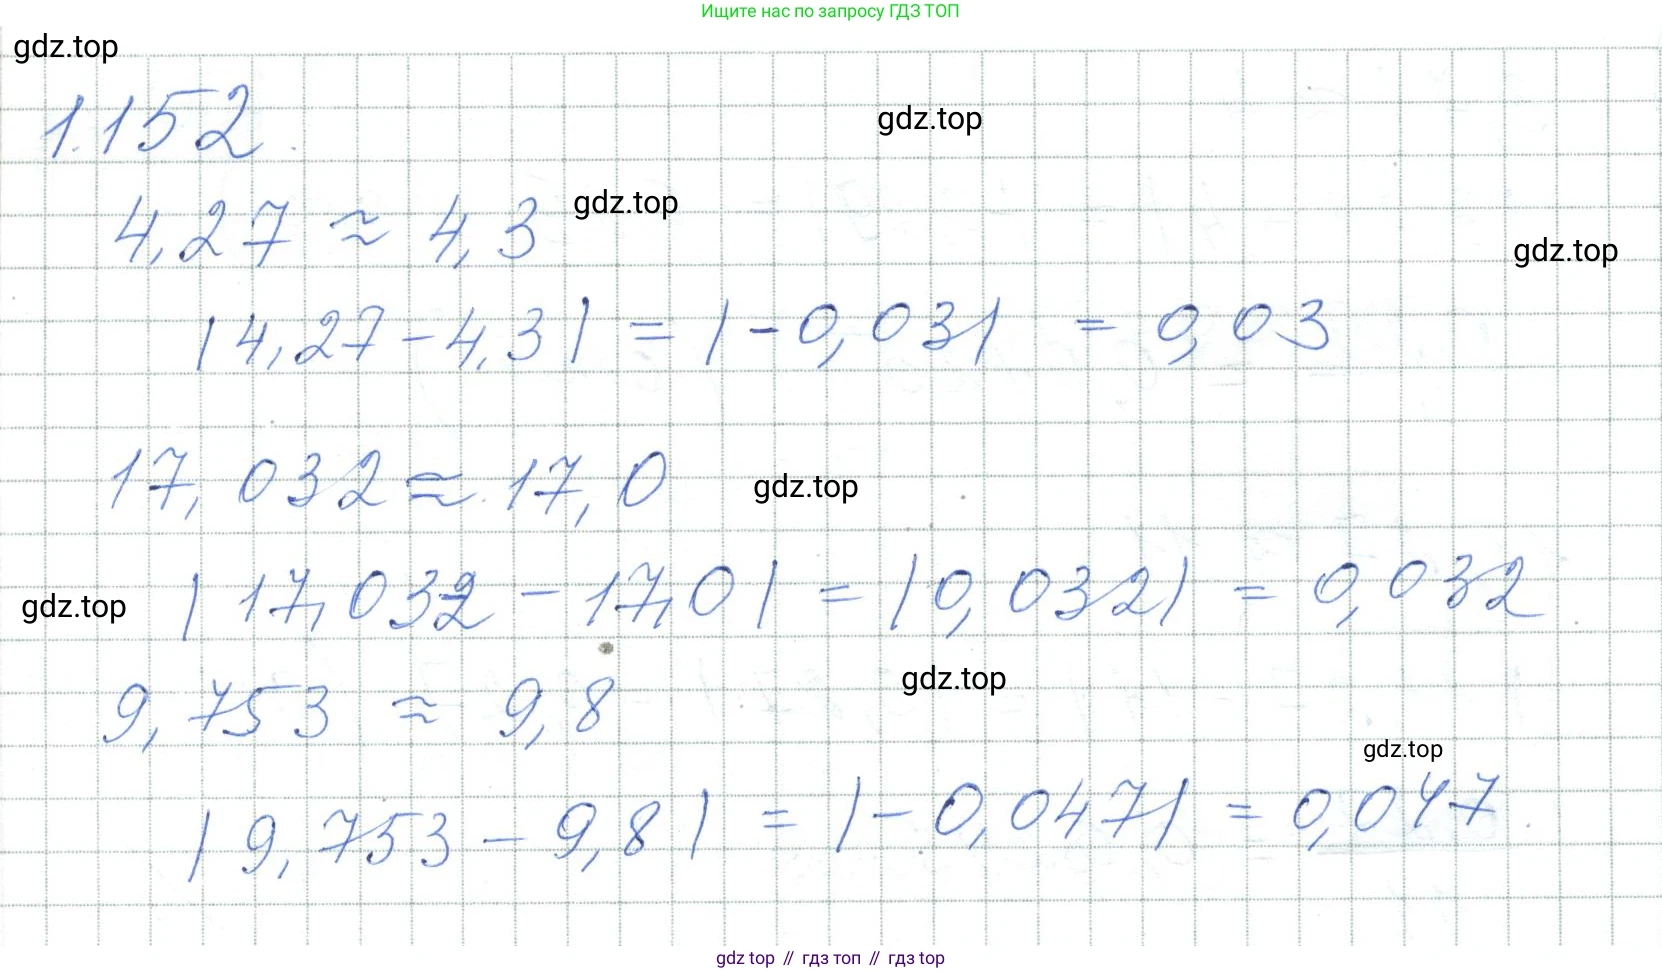 Ищите нас по запросу ГДЗ ТОП
gdz.top
1.152.
gdz.top
4,27 ≈ 4,3
gdz.top
gdz.top
|4,27 - 4,3| = |-0,03| = 0,03
17,032 ≈ 17,0
gdz.top
|17,032 - 17,0| = |0,032| = 0,032.
gdz.top
9,753 ≈ 9,8
gdz.top
gdz.top
|9,753 - 9,8| = |-0,047| = 0,047.
gdz top // гдз топ // gdz top